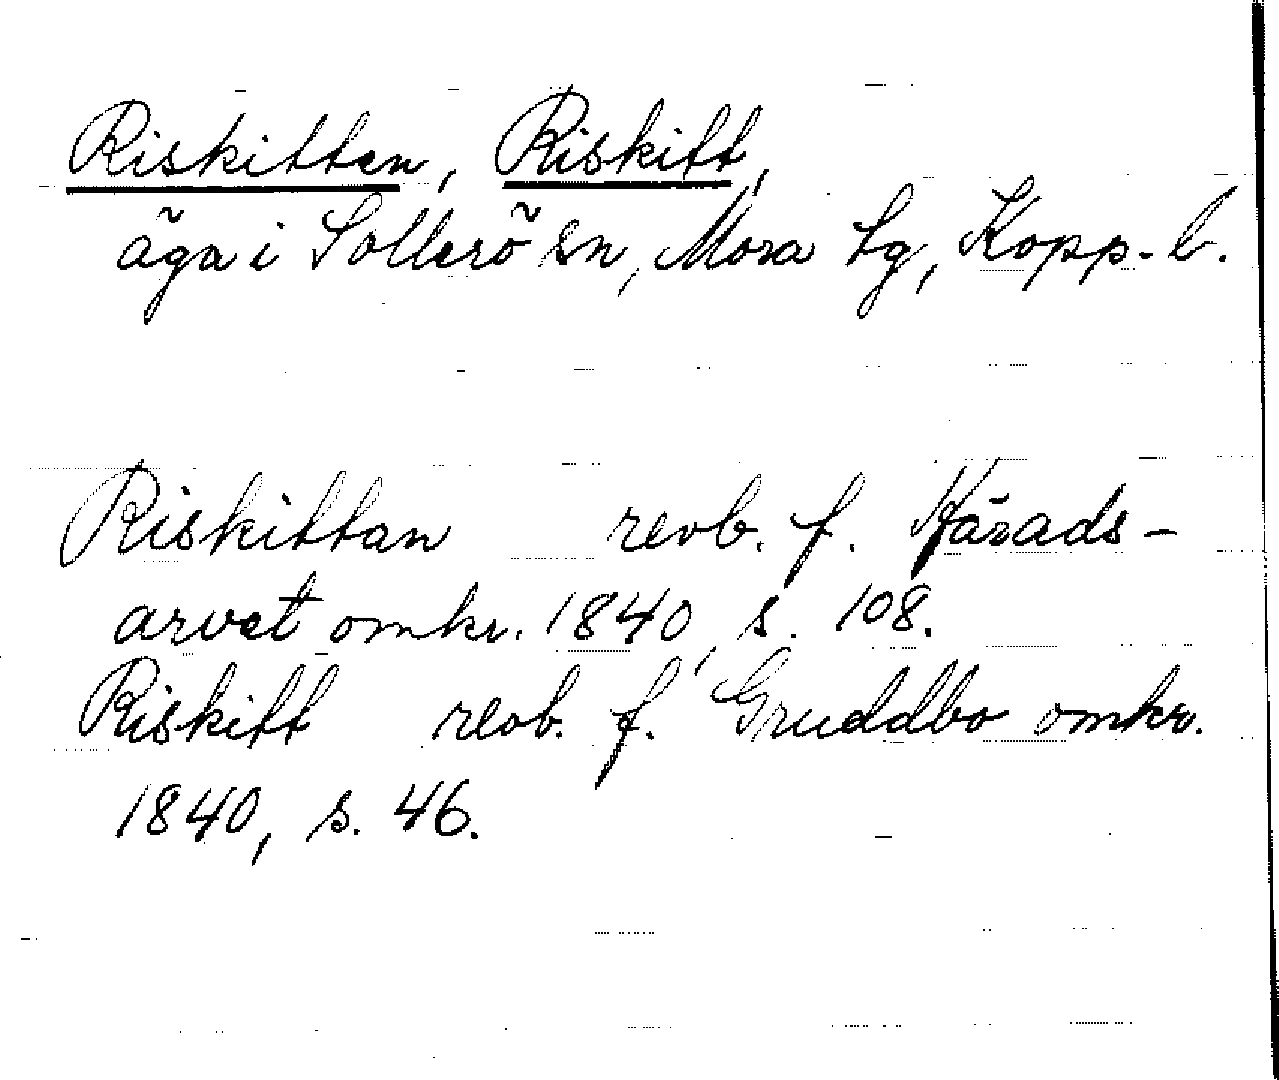 Riskitten, Riskitt,
äga i Sollerö sn, Mora tg, Kopp. l.
Riskittan revb. f. Häradsarvet omkr. 1840, s. 108.
Riskitt revb. f. Gruddbo omkr.
1840, s. 46.